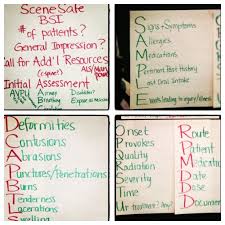 SceneSafe
BSI
# of patients?
General Impression?
Call for Add'l Resources
(cspine) ALS/Man
power
Initial Assessment
AVPU Airway Disability?
Breathing Expose
Signs + Symptoms
Allergies
Medications
Pertinent Past History
Last Oral Intake
Events leading to injury/illness
Deformities
Contusions
Abrasions
Punctures/Penetrations
Burns
Tenderness
Lacerations
Swelling
Onset
Provokes
Quality
Radiates
Severity
Time
Ur-treatment? Any?
Route
Patient
Medicatio
Date
Dose
Document